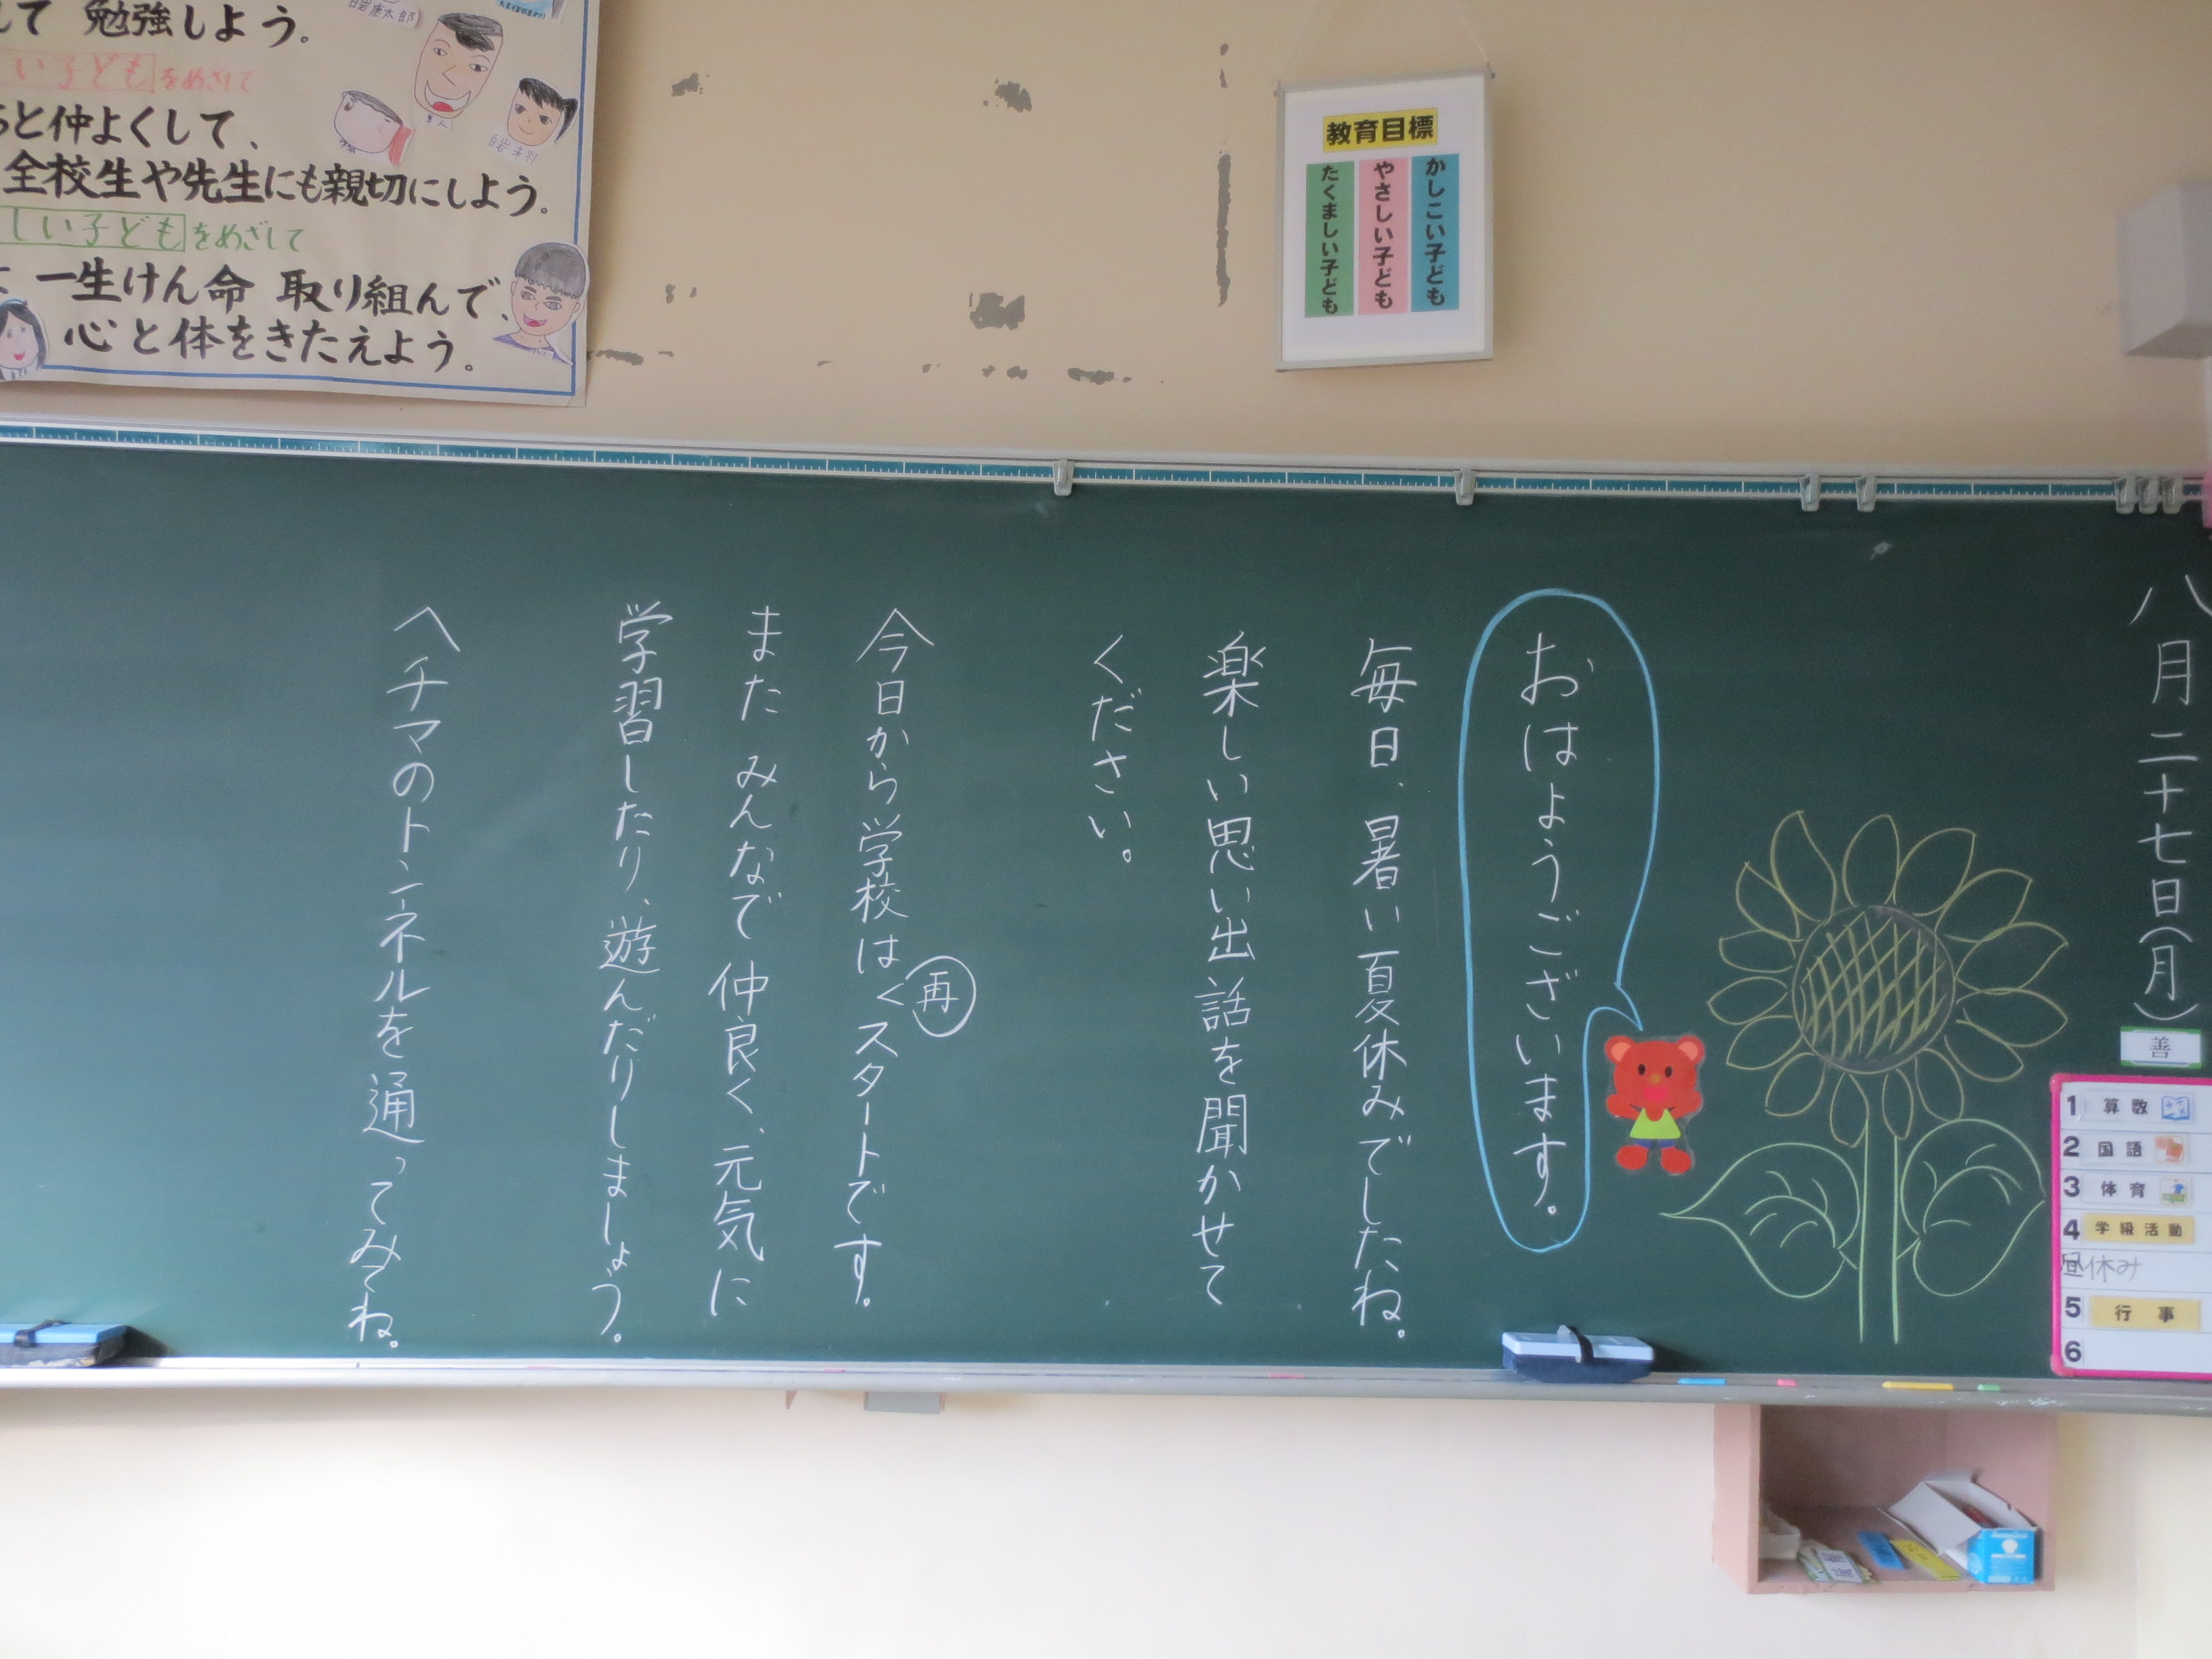 て 勉強しよう。
い子どもをめざして
と仲よくして、
全校生や先生にも親切にしよう。
しい子どもをめざして
一生けん命 取り組んで、
心と体をきたえよう。
教育目標
かしこい子ども
やさしい子ども
たくましい子ども
八月二十七日(月)
善
1 算数
2 国語
3 体育
4 学級活動
昼休み
5 行事
6
おはようございます。
毎日、暑い夏休みでしたね。
楽しい思い出話を聞かせて
ください。
今日から学校は再スタートです。
また みんなで仲良く、元気に
学習したり、遊んだりしましょう。
ヘチマのトンネルを通ってみてね。